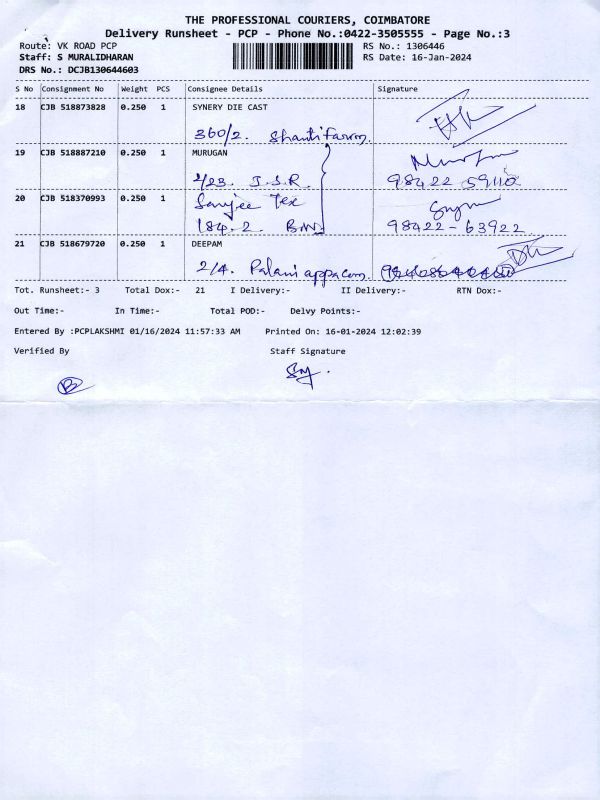 THE PROFESSIONAL COURIERS, COIMBATORE
Delivery Runsheet - PCP - Phone No.:0422-3505555 - Page No.:3
Route: VK ROAD PCP RS No.: 1306446
Staff: S MURALIDHARAN RS Date: 16-Jan-2024
DRS No.: DCJB130644603
S No Consignment No Weight PCS Consignee Details Signature
18 CJB 518873828 0.250 1 SYNERY DIE CAST
360/2. Shanti farm.
19 CJB 518887210 0.250 1 MURUGAN
1/23. J.S.R. 98422 59110
20 CJB 518370993 0.250 1 Sanjee Tex
184.2. B.N. 98422-63922
21 CJB 518679720 0.250 1 DEEPAM
2/4. Palaniappa
Tot. Runsheet:- 3 Total Dox:- 21 I Delivery:- II Delivery:- RTN Dox:-
Out Time:- In Time:- Total POD:- Delvy Points:-
Entered By :PCPLAKSHMI 01/16/2024 11:57:33 AM Printed On: 16-01-2024 12:02:39
Verified By Staff Signature